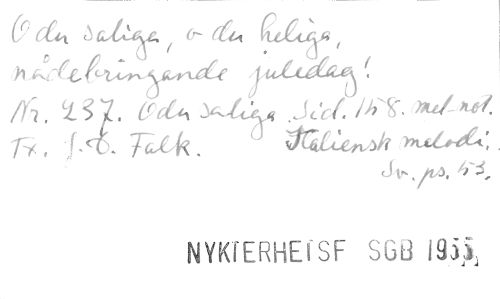 O du saliga, o du heliga,
nådebringande juledag!
Nr. 237. O du saliga Sid. 158. mel-not.
Tx. J. D. Falk. Italiensk melodi.
Sv. ps. 53.
NYKTERHETSF SGB 1955